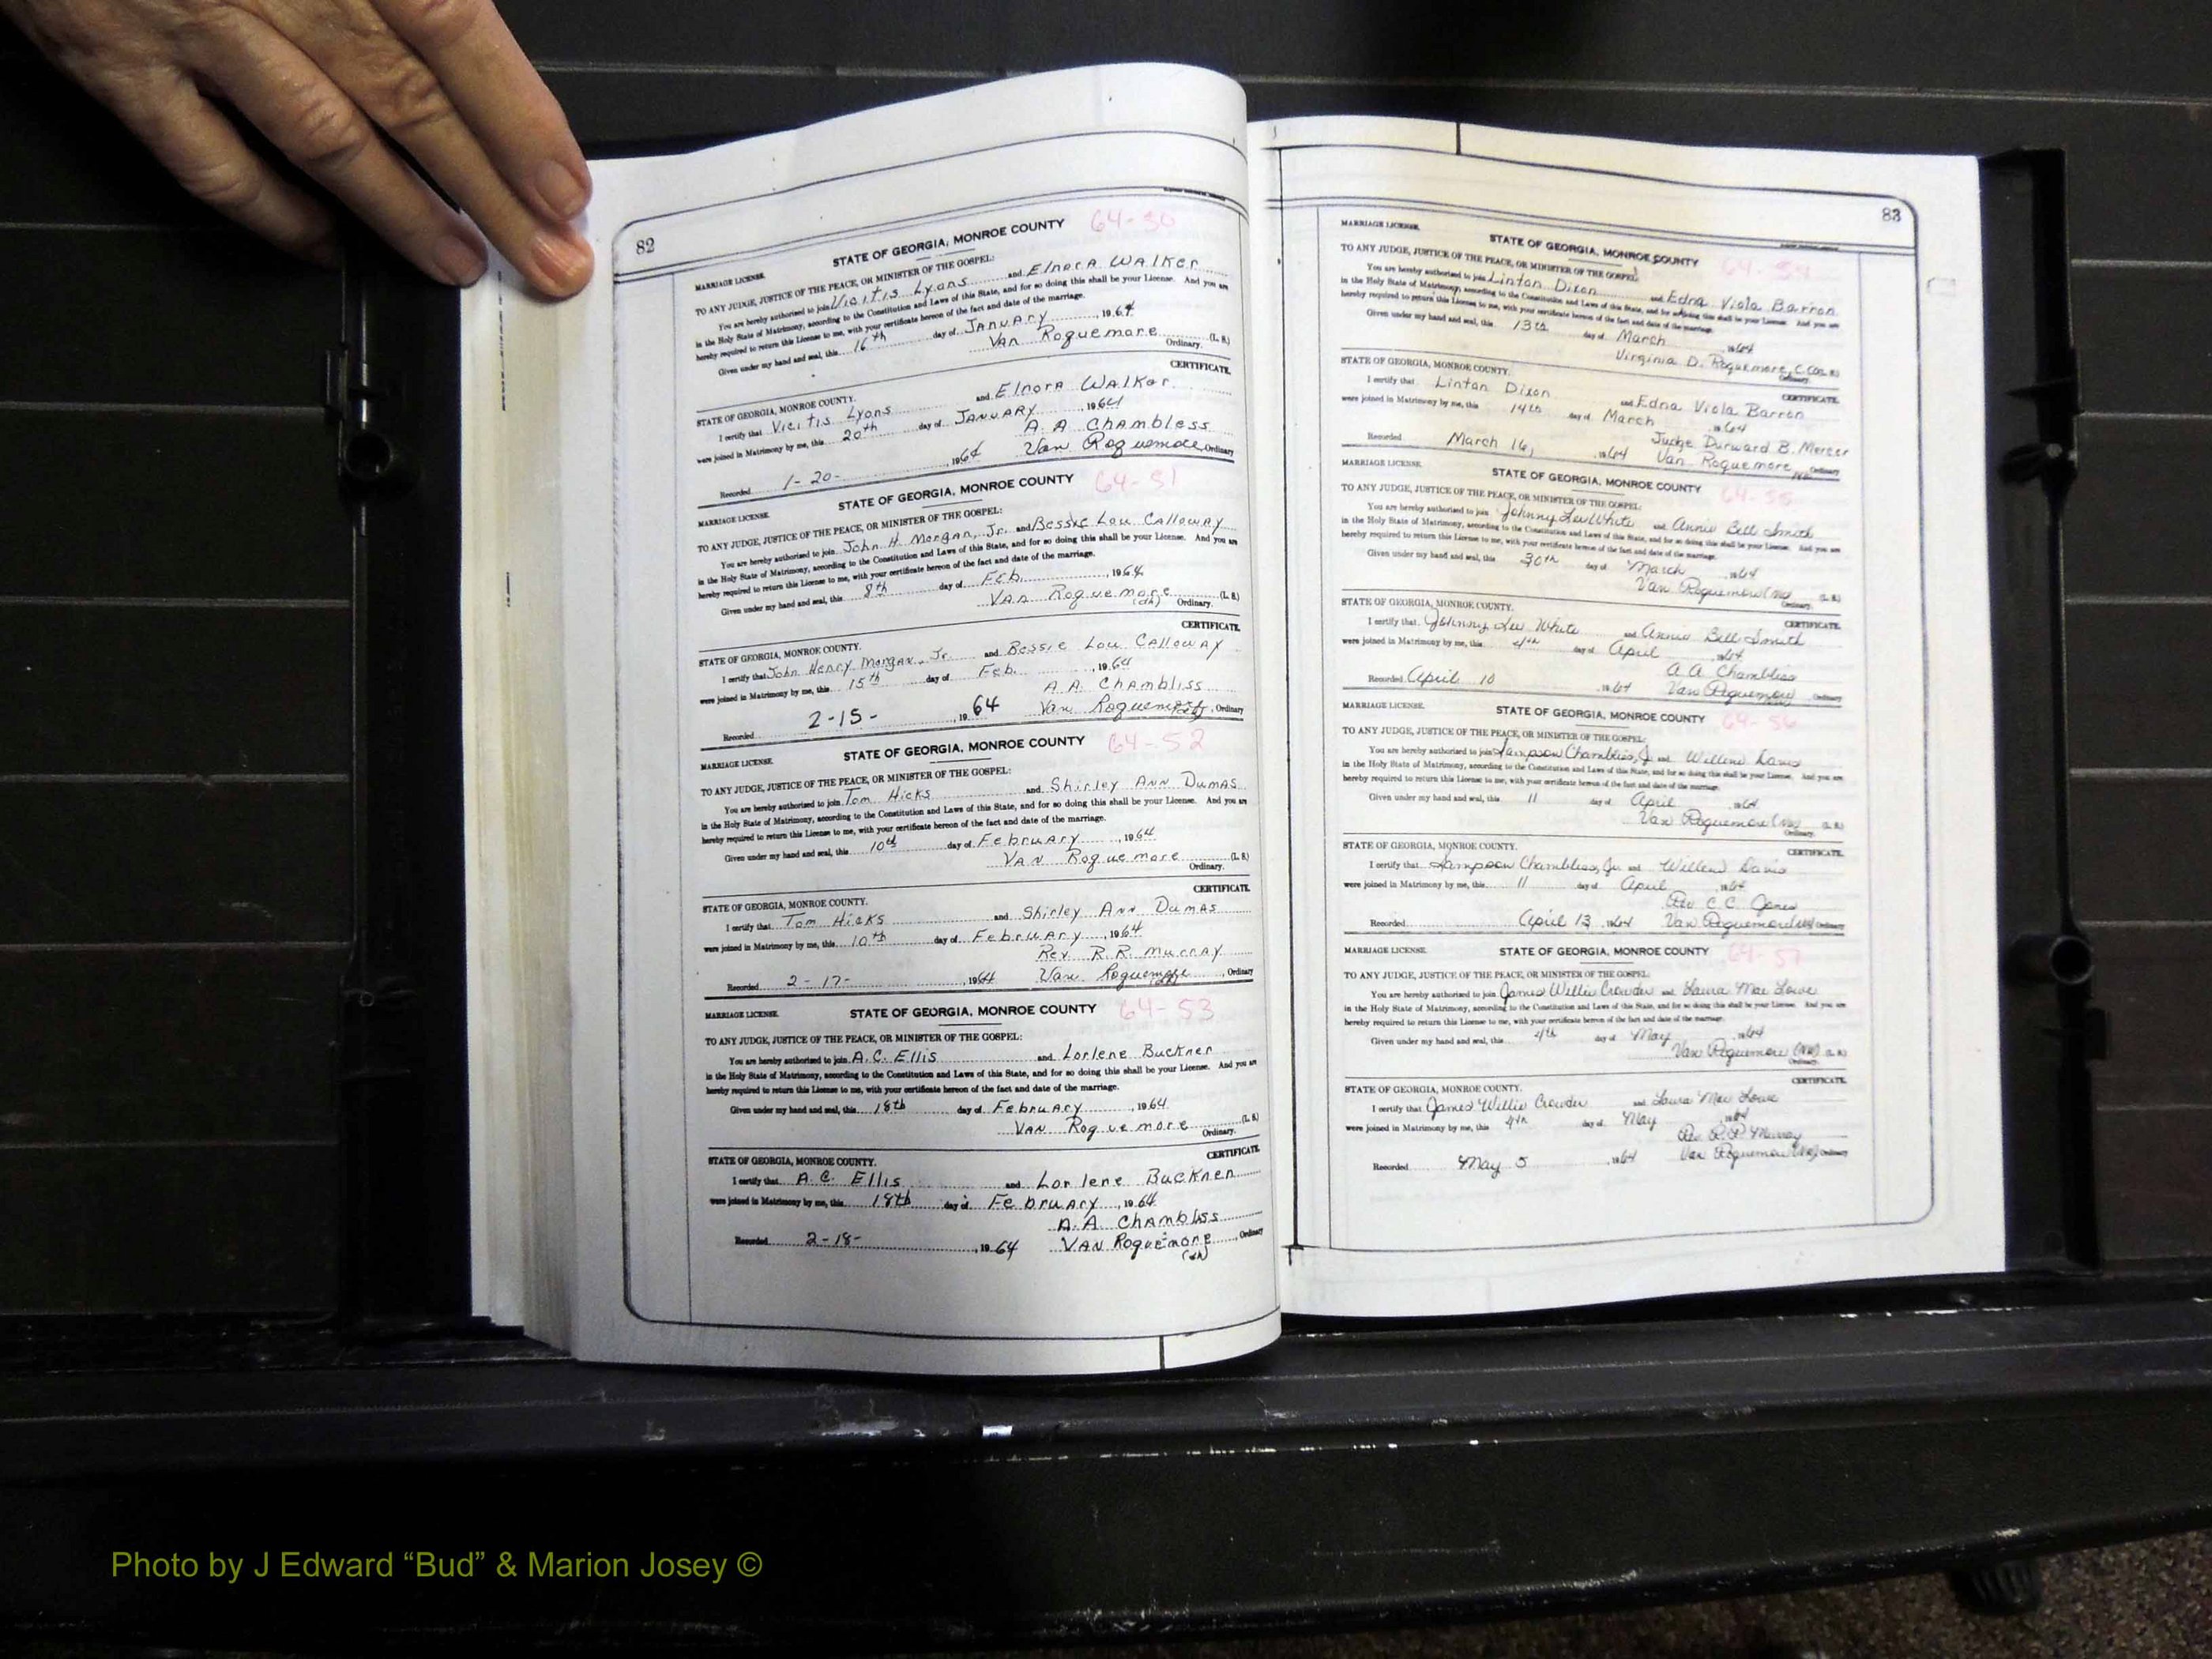 82
STATE OF GEORGIA, MONROE COUNTY 64-50
MARRIAGE LICENSE.
TO ANY JUDGE, JUSTICE OF THE PEACE, OR MINISTER OF THE GOSPEL:
You are hereby authorized to join Vicitis Lyons and Elnora Walker
in the Holy State of Matrimony, according to the Constitution and Laws of this State, and for so doing this shall be your License. And you are
hereby required to return this License to me, with your certificate hereon of the fact and date of the marriage.
Given under my hand and seal, this 16th day of January, 1964
Van Roquemore (L. S.)
Ordinary.
CERTIFICATE.
STATE OF GEORGIA, MONROE COUNTY.
I certify that Vicitis Lyons and Elnora Walker
were joined in Matrimony by me, this 20th day of January, 1964
A. A Chambless
Recorded 1-20-, 1964 Van Roquemore Ordinary
STATE OF GEORGIA, MONROE COUNTY 64-51
MARRIAGE LICENSE.
TO ANY JUDGE, JUSTICE OF THE PEACE, OR MINISTER OF THE GOSPEL:
You are hereby authorized to join John H. Morgan, Jr. and Bessie Lou Calloway
in the Holy State of Matrimony, according to the Constitution and Laws of this State, and for so doing this shall be your License. And you are
hereby required to return this License to me, with your certificate hereon of the fact and date of the marriage.
Given under my hand and seal, this 8th day of Feb., 1964
Van Roquemore (L. S.)
(dh) Ordinary.
CERTIFICATE.
STATE OF GEORGIA, MONROE COUNTY.
I certify that John Henry Morgan, Jr. and Bessie Lou Calloway
were joined in Matrimony by me, this 15th day of Feb., 1964
A. A. Chambliss
Recorded 2-15-, 1964 Van Roquemore, Ordinary
STATE OF GEORGIA, MONROE COUNTY 64-52
MARRIAGE LICENSE.
TO ANY JUDGE, JUSTICE OF THE PEACE, OR MINISTER OF THE GOSPEL:
You are hereby authorized to join Tom Hicks and Shirley Ann Dumas
in the Holy State of Matrimony, according to the Constitution and Laws of this State, and for so doing this shall be your License. And you are
hereby required to return this License to me, with your certificate hereon of the fact and date of the marriage.
Given under my hand and seal, this 10th day of February, 1964
Van Roquemore (L. S.)
Ordinary.
CERTIFICATE.
STATE OF GEORGIA, MONROE COUNTY.
I certify that Tom Hicks and Shirley Ann Dumas
were joined in Matrimony by me, this 10th day of February, 1964
Rev. R. R. Murray
Recorded 2-17-, 1964 Van Roquemore, Ordinary
(dh)
MARRIAGE LICENSE. STATE OF GEORGIA, MONROE COUNTY 64-53
TO ANY JUDGE, JUSTICE OF THE PEACE, OR MINISTER OF THE GOSPEL:
You are hereby authorized to join A. C. Ellis and Lorlene Buckner
in the Holy State of Matrimony, according to the Constitution and Laws of this State, and for so doing this shall be your License. And you are
hereby required to return this License to me, with your certificate hereon of the fact and date of the marriage.
Given under my hand and seal, this 18th day of February, 1964
Van Roquemore (L. S.)
Ordinary.
CERTIFICATE.
STATE OF GEORGIA, MONROE COUNTY.
I certify that A. C. Ellis and Lorlene Buckner
were joined in Matrimony by me, this 18th day of February, 1964
A. A Chambliss
Recorded 2-18-, 1964 Van Roquemore, Ordinary
(dh)
83
MARRIAGE LICENSE.
STATE OF GEORGIA, MONROE COUNTY 64-54
TO ANY JUDGE, JUSTICE OF THE PEACE, OR MINISTER OF THE GOSPEL:
You are hereby authorized to join Linton Dixon and Edna Viola Barron
in the Holy State of Matrimony, according to the Constitution and Laws of this State, and for so doing this shall be your License. And you are
hereby required to return this License to me, with your certificate hereon of the fact and date of the marriage.
Given under my hand and seal, this 13th day of March, 1964
Virginia D. Roquemore, C.C.O.
Ordinary.
STATE OF GEORGIA, MONROE COUNTY. CERTIFICATE.
I certify that Linton Dixon and Edna Viola Barron
were joined in Matrimony by me, this 14th day of March, 1964
Judge Durward B. Mercer
Recorded March 16, 1964 Van Roquemore Ordinary
MARRIAGE LICENSE. STATE OF GEORGIA, MONROE COUNTY 64-55
TO ANY JUDGE, JUSTICE OF THE PEACE, OR MINISTER OF THE GOSPEL:
You are hereby authorized to join Johnny Lee White and Annie Bell Smith
in the Holy State of Matrimony, according to the Constitution and Laws of this State, and for so doing this shall be your License. And you are
hereby required to return this License to me, with your certificate hereon of the fact and date of the marriage.
Given under my hand and seal, this 30th day of March, 1964
Van Roquemore (L. S.)
Ordinary.
STATE OF GEORGIA, MONROE COUNTY. CERTIFICATE.
I certify that Johnny Lee White and Annie Bell Smith
were joined in Matrimony by me, this 4th day of April, 1964
A A Chambliss
Recorded April 10, 1964 Van Roquemore Ordinary
MARRIAGE LICENSE. STATE OF GEORGIA, MONROE COUNTY 64-56
TO ANY JUDGE, JUSTICE OF THE PEACE, OR MINISTER OF THE GOSPEL:
You are hereby authorized to join Sampson Chambliss, Jr. and Willene Davis
in the Holy State of Matrimony, according to the Constitution and Laws of this State, and for so doing this shall be your License. And you are
hereby required to return this License to me, with your certificate hereon of the fact and date of the marriage.
Given under my hand and seal, this 11 day of April, 1964
Van Roquemore (L. S.)
Ordinary.
STATE OF GEORGIA, MONROE COUNTY. CERTIFICATE.
I certify that Sampson Chambliss, Jr. and Willene Davis
were joined in Matrimony by me, this 11 day of April, 1964
Rev C. C. Jones
Recorded April 13, 1964 Van Roquemore Ordinary
MARRIAGE LICENSE. STATE OF GEORGIA, MONROE COUNTY 64-57
TO ANY JUDGE, JUSTICE OF THE PEACE, OR MINISTER OF THE GOSPEL:
You are hereby authorized to join James Willie Crowder and Laura Mae Lowe
in the Holy State of Matrimony, according to the Constitution and Laws of this State, and for so doing this shall be your License. And you are
hereby required to return this License to me, with your certificate hereon of the fact and date of the marriage.
Given under my hand and seal, this 4th day of May, 1964
Van Roquemore (L. S.)
Ordinary.
CERTIFICATE.
STATE OF GEORGIA, MONROE COUNTY.
I certify that James Willie Crowder and Laura Mae Lowe
were joined in Matrimony by me, this 4th day of May, 1964
Rev. R. R. Murray
Recorded May 5, 1964 Van Roquemore Ordinary
Photo by J Edward “Bud” & Marion Josey ©